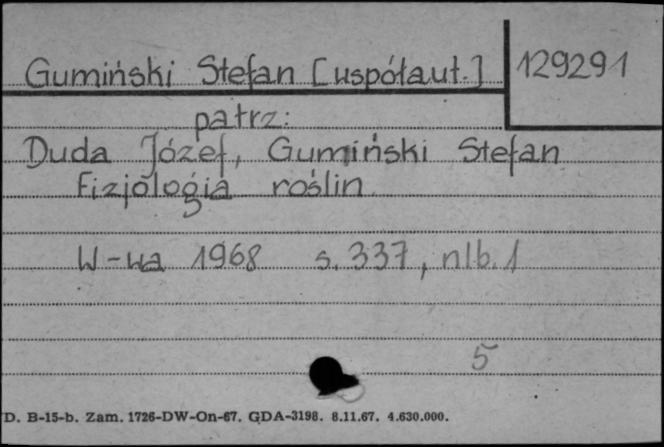 Gumiński Stefan [współaut.] 129291
patrz:
Duda Józef, Gumiński Stefan
Fizjologia roślin
W-wa 1968 s. 337, nlb. 1
5
D. B-15-b. Zam. 1726-DW-On-67. GDA-3198. 8.11.67. 4.630.000.